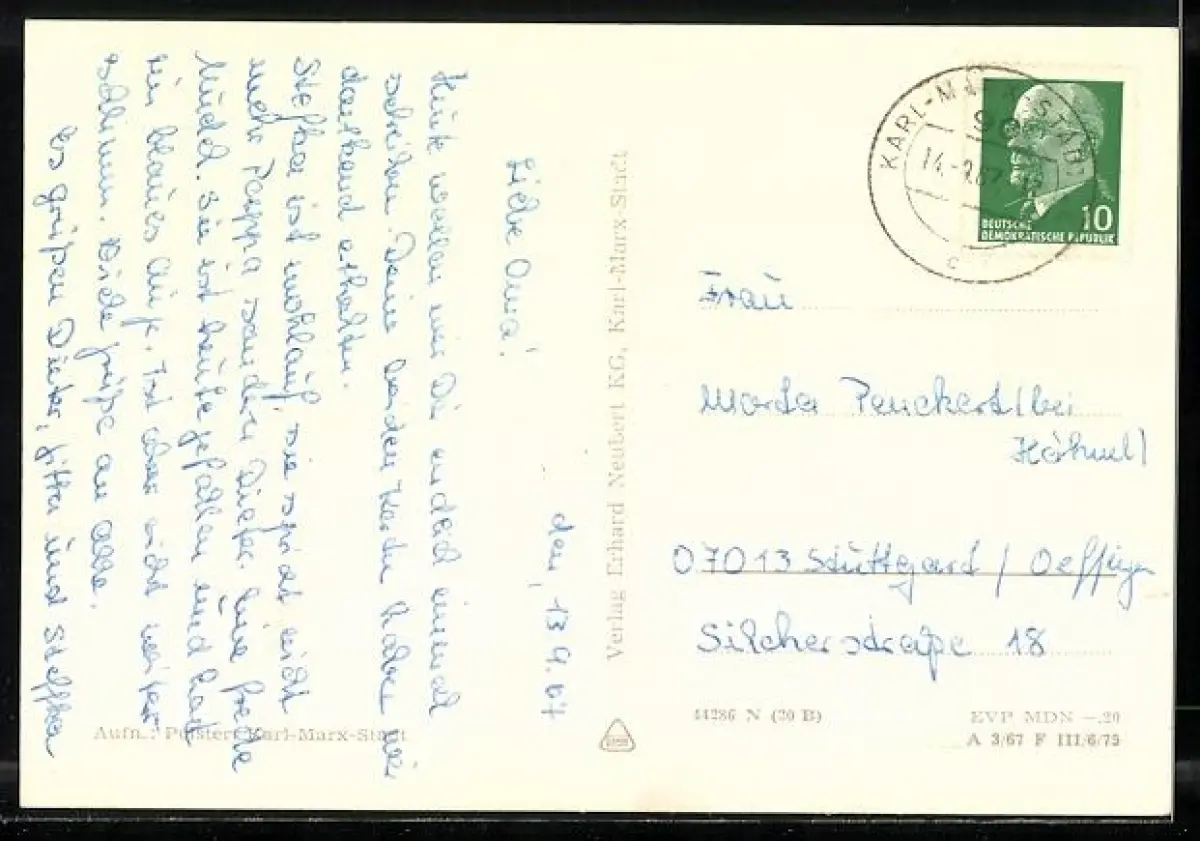 den, 13.9.67
Liebe Oma!
Heute wollen wir Dir endlich einmal
schreiben. Deine beiden Karten haben wir
dankend erhalten.
Steffka ist wohlauf, sie spricht nicht
mehr Pappa sondern Dieter. Eine freche
Nudel. Sie ist heute gefallen und hat
ein blaues Auge. Ist aber nicht weiter
schlimm. Viele Grüße an alle.
Es grüßen Dieter, Jitta und Steffka
Aufn.: Polster, Karl-Marx-Stadt
Verlag Erhard Neubert KG, Karl-Marx-Stadt
KARL-MARX-STADT
14.-9.67
DEUTSCHE
DEMOKRATISCHE REPUBLIK
10
Frau
Marta Penckert (bei
Höhnel)
07013 Stuttgard / Oeffigen
Silcherstraße 18
44286 N (20 B)
EVP MDN -.20
A 3/67 F III/6/73